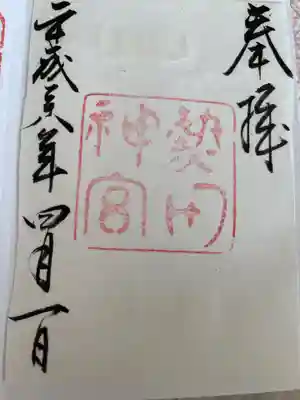 奉拝
熱田
神宮
平成二八年四月一日